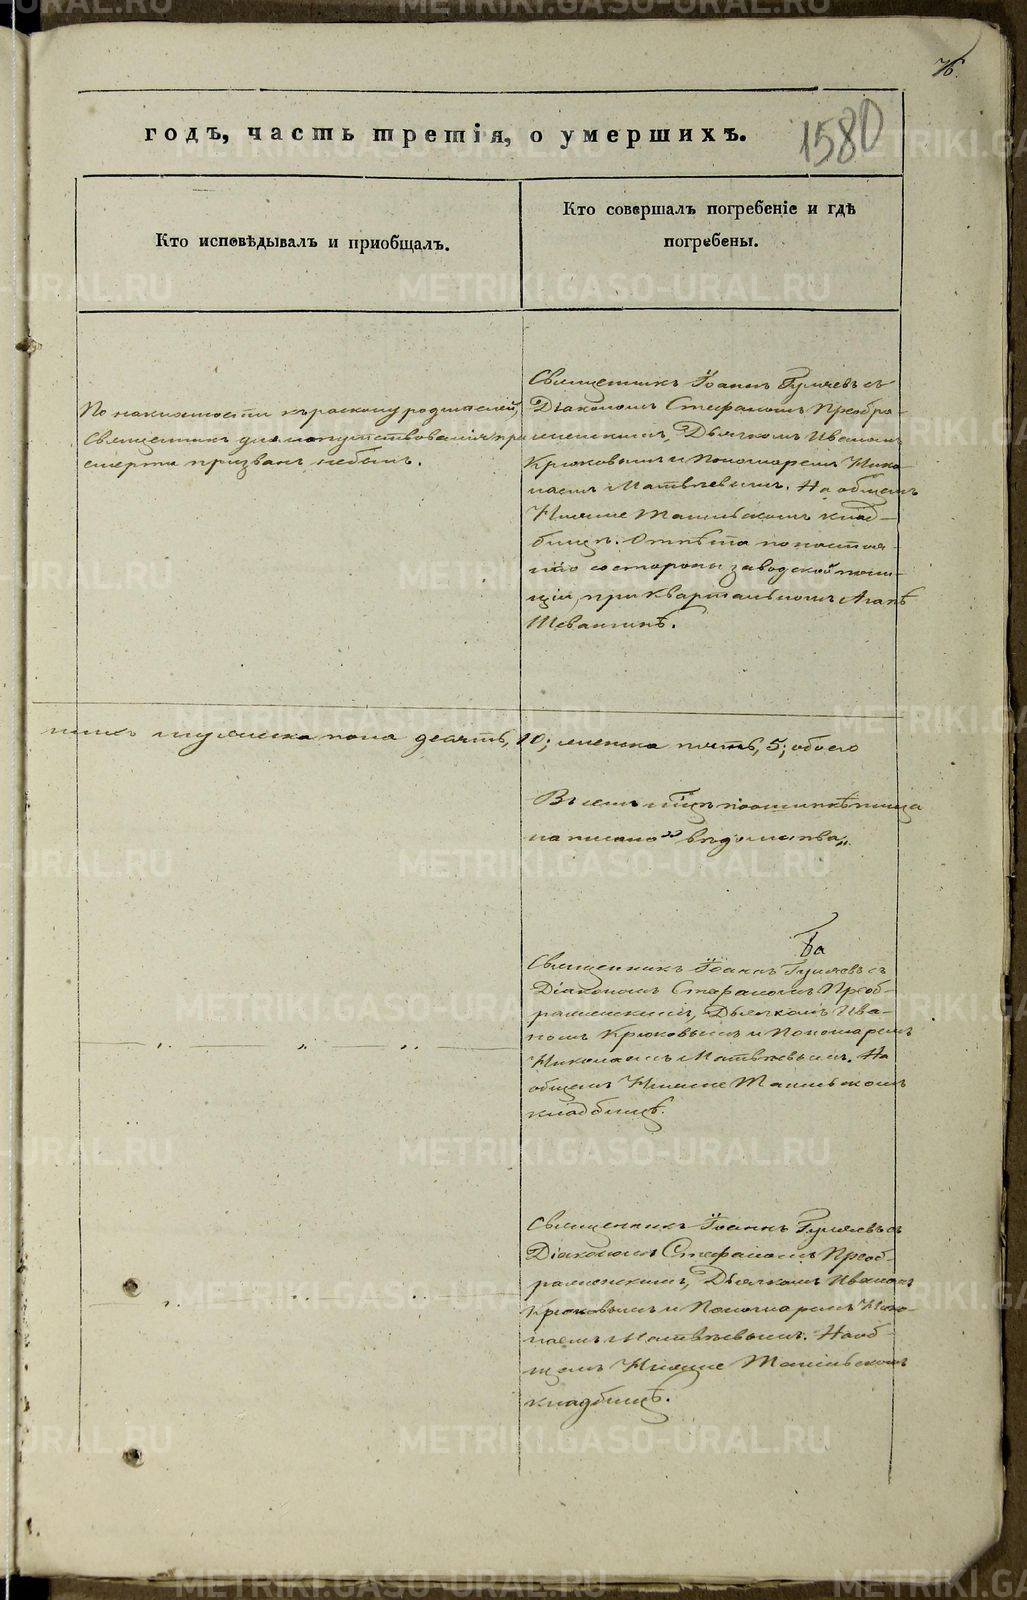 76.
годъ, часть третія, о умершихъ.
1580
Кто исповѣдывалъ и приобщалъ.
Кто совершалъ погребеніе и гдѣ
погребены.
По наклонности къ расколу родителей,
священникъ для напутствованія при
смерти призванъ небылъ.
Священникъ Іоаннъ Гуляевъ съ
Діакономъ Стефаномъ Преобра-
женскимъ, Дьячкомъ Иваномъ
Крюковымъ и Пономаремъ Нико-
лаемъ Матвѣевымъ. На общемъ
Нижне Тагильскомъ клад-
бищѣ. Отпѣта по настоя-
нію со стороны заводской поли-
ціи, при Квартальномъ Агапѣ
Шевалинѣ.
мужеска пола десять, 10; женска пять, 5; обоего
Въ семъ мцѣ по ошибкѣ
написано „вѣдомства„
Ба
Священникъ Іоаннъ Гуляевъ съ
Діакономъ Стефаномъ Преоб-
раженскимъ, Дьячкомъ Ива-
номъ Крюковымъ и Пономаремъ
Николаемъ Матвѣевымъ. На
общемъ Нижне Тагильскомъ
кладбищѣ.
Священникъ Іоаннъ Гуляевъ съ
Діакономъ Стефаномъ Преоб-
раженскимъ, Дьячкомъ Иваномъ
Крюковымъ и Пономаремъ Нико-
лаемъ Матвѣевымъ. На об-
щемъ Нижне Тагильскомъ
кладбищѣ.
METRIKI.GASO-URAL.RU